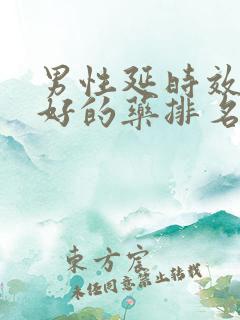 男性延时效
好的药排名
東方宸
未经同意禁止转载